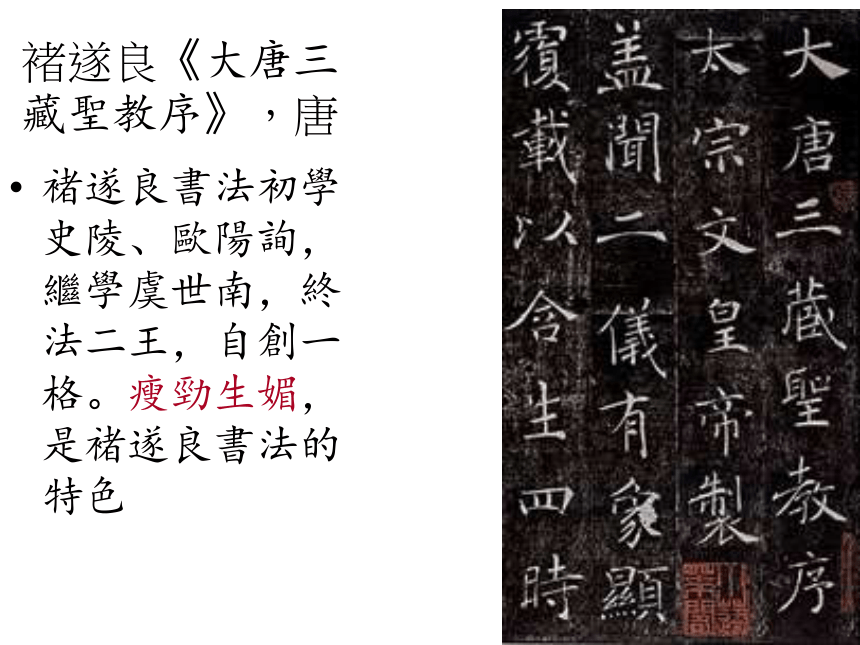 褚遂良《大唐三
藏聖教序》，唐
• 褚遂良書法初學
史陵、歐陽詢，
繼學虞世南，終
法二王，自創一
格。瘦勁生媚，
是褚遂良書法的
特色
大唐三藏聖教序
太宗文皇帝製
盖聞二儀有象顯
覆載以含生四時